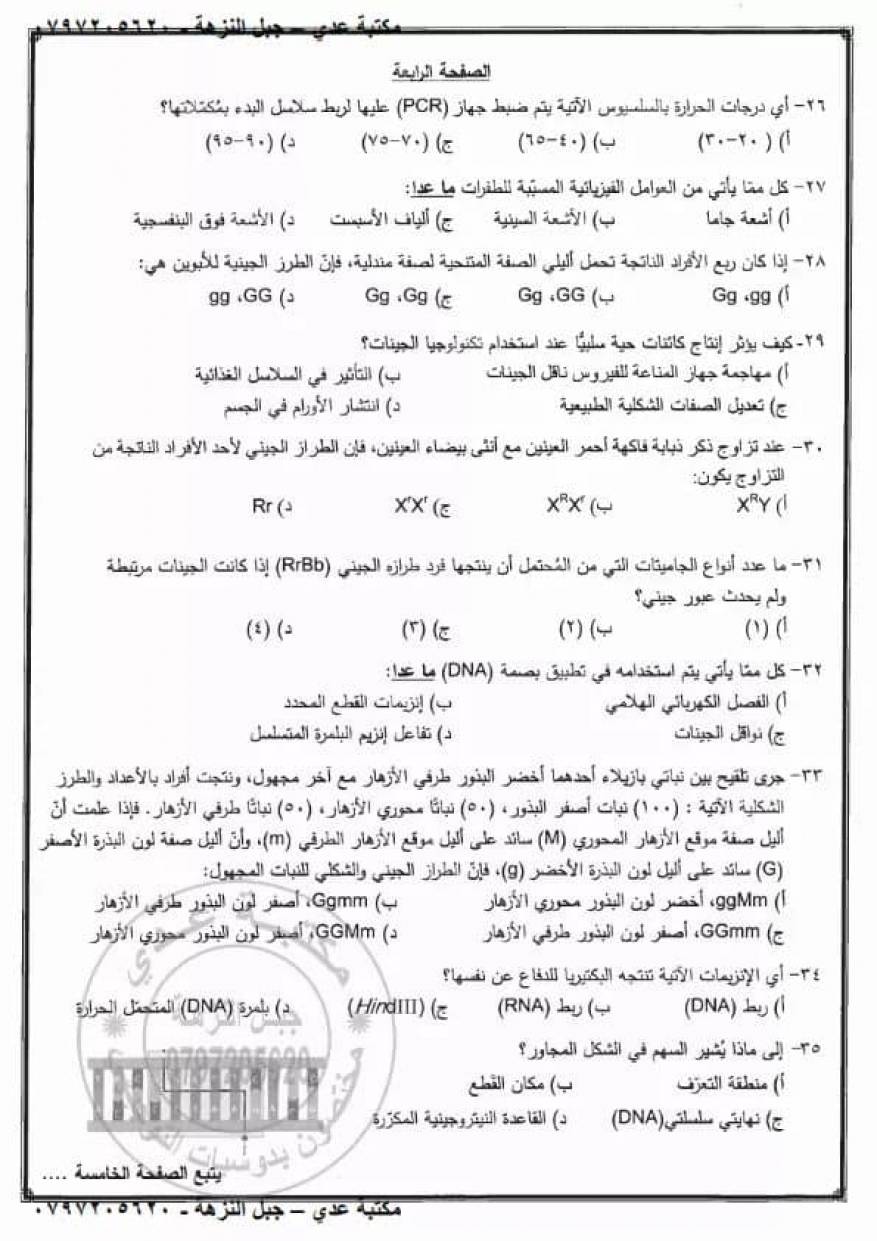 مكتبة عدي – جبل النزهة - ٠٧٩٧٢٠٥٦٢٠
الصفحة الرابعة
٢٦- أي درجات الحرارة بالسلسيوس الآتية يتم ضبط جهاز (PCR) عليها لربط سلاسل البدء بمُكمّلاتها؟
أ) (٢٠-٣٠) ب) (٤٠-٦٥) ج) (٧٠-٧٥) د) (٩٠-٩٥)
٢٧- كل ممّا يأتي من العوامل الفيزيائية المسبّبة للطفرات ما عدا:
أ) أشعة جاما ب) الأشعة السينية ج) ألياف الأسبست د) الأشعة فوق البنفسجية
٢٨- إذا كان ربع الأفراد الناتجة تحمل أليلي الصفة المتنحية لصفة مندلية، فإنّ الطرز الجينية للأبوين هي:
أ) Gg ،gg ب) Gg ،GG ج) Gg ،Gg د) gg ،GG
٢٩- كيف يؤثر إنتاج كائنات حية سلبيًّا عند استخدام تكنولوجيا الجينات؟
أ) مهاجمة جهاز المناعة للفيروس ناقل الجينات ب) التأثير في السلاسل الغذائية
ج) تعديل الصفات الشكلية الطبيعية د) انتشار الأورام في الجسم
٣٠- عند تزاوج ذكر ذبابة فاكهة أحمر العينين مع أنثى بيضاء العينين، فإن الطراز الجيني لأحد الأفراد الناتجة من
التزاوج يكون:
أ) XᴿY ب) XᴿXʳ ج) XʳXʳ د) Rr
٣١- ما عدد أنواع الجاميتات التي من المُحتمل أن ينتجها فرد طرازه الجيني (RrBb) إذا كانت الجينات مرتبطة
ولم يحدث عبور جيني؟
أ) (١) ب) (٢) ج) (٣) د) (٤)
٣٢- كل ممّا يأتي يتم استخدامه في تطبيق بصمة (DNA) ما عدا:
أ) الفصل الكهربائي الهلامي ب) إنزيمات القطع المحدد
ج) نواقل الجينات د) تفاعل إنزيم البلمرة المتسلسل
٣٣- جرى تلقيح بين نباتي بازيلاء أحدهما أخضر البذور طرفي الأزهار مع آخر مجهول، ونتجت أفراد بالأعداد والطرز
الشكلية الآتية : (١٠٠) نبات أصفر البذور، (٥٠) نباتًا محوري الأزهار، (٥٠) نباتًا طرفي الأزهار. فإذا علمت أنّ
أليل صفة موقع الأزهار المحوري (M) سائد على أليل موقع الأزهار الطرفي (m)، وأنّ أليل صفة لون البذرة الأصفر
(G) سائد على أليل لون البذرة الأخضر (g)، فإنّ الطراز الجيني والشكلي للنبات المجهول:
أ) ggMm، أخضر لون البذور محوري الأزهار ب) Ggmm، أصفر لون البذور طرفي الأزهار
ج) GGmm، أصفر لون البذور طرفي الأزهار د) GGMm، أصفر لون البذور محوري الأزهار
٣٤- أي الإنزيمات الآتية تنتجه البكتيريا للدفاع عن نفسها؟
أ) ربط (DNA) ب) ربط (RNA) ج) (HindIII) د) بلمرة (DNA) المتحمّل الحرارة
٣٥- إلى ماذا يُشير السهم في الشكل المجاور؟
أ) منطقة التعرّف ب) مكان القَطع
ج) نهايتي سلسلتي(DNA) د) القاعدة النيتروجينية المكرّرة
يتبع الصفحة الخامسة ....
مكتبة عدي – جبل النزهة - ٠٧٩٧٢٠٥٦٢٠
مكتبة عدي
جبل النزهة
0797205620